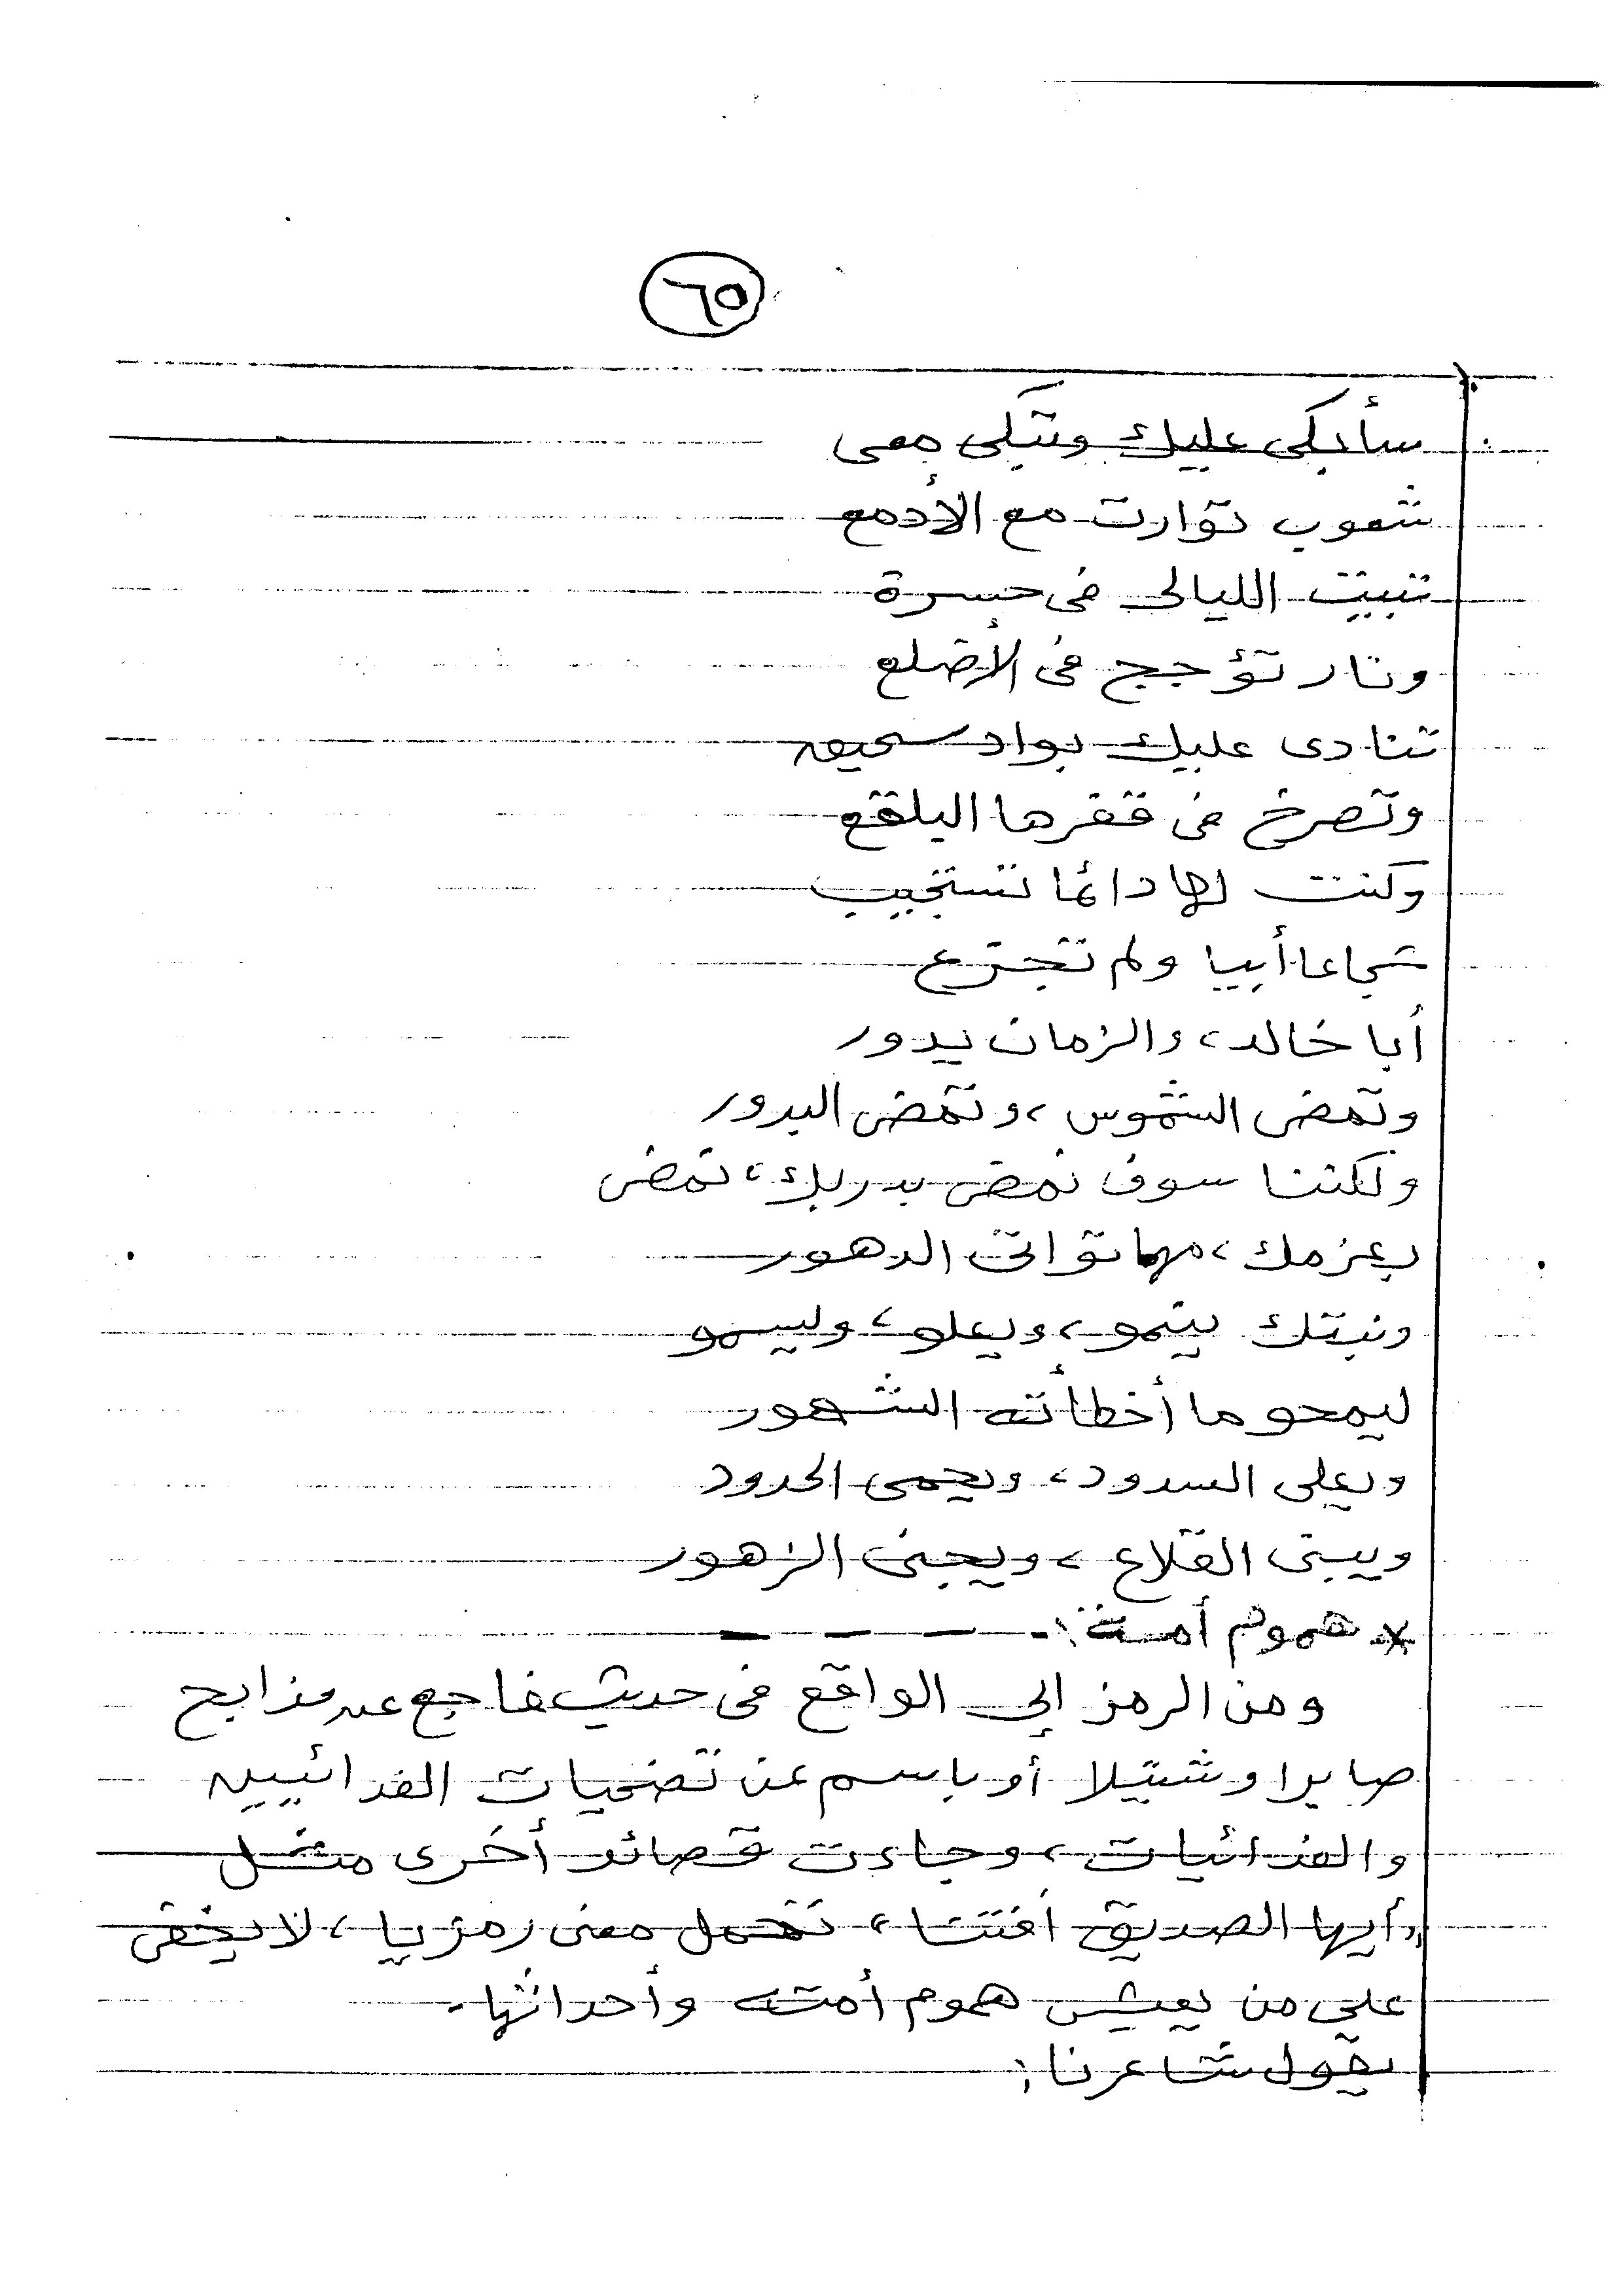 ٦٥
سأبكى عليك وتبكى معى
شعوب توارت مع الأدمع
تبيت الليالى فى حسرة
ونار تؤجج فى الأضلع
تنادى عليك بواد سحيق
وتصرخ فى قفرها البلقع
وكنت لها دائما تستجيب
شجاعا أبيا ولم تجزع
أبا خالد، والزمان يدور
وتمضى الشموس، وتمضى البدور
ولكننا سوف نمضى بدربك، نمضى
بعزمك، مهما توالت الدهور
ونبتك ينمو، ويعلو، ويسمو
ليمحو ما أخطأته الشهور
ويعلى السدود، ويحمى الحدود
ويبنى القلاع، ويجنى الزهور
* هموم أمة:
ومن الرمز إلى الواقع فى حديث فاجع عن مذابح
صابرا وشتيلا أو باسم عن تضحيات الفدائيين
والفدائيات، وجاءت قصائد أخرى مثل
"أيها الصديق أفتنا" تحمل معنى رمزيا، لا يخفى
على من يعيش هموم أمته وأحداثها.
يقول شاعرنا: